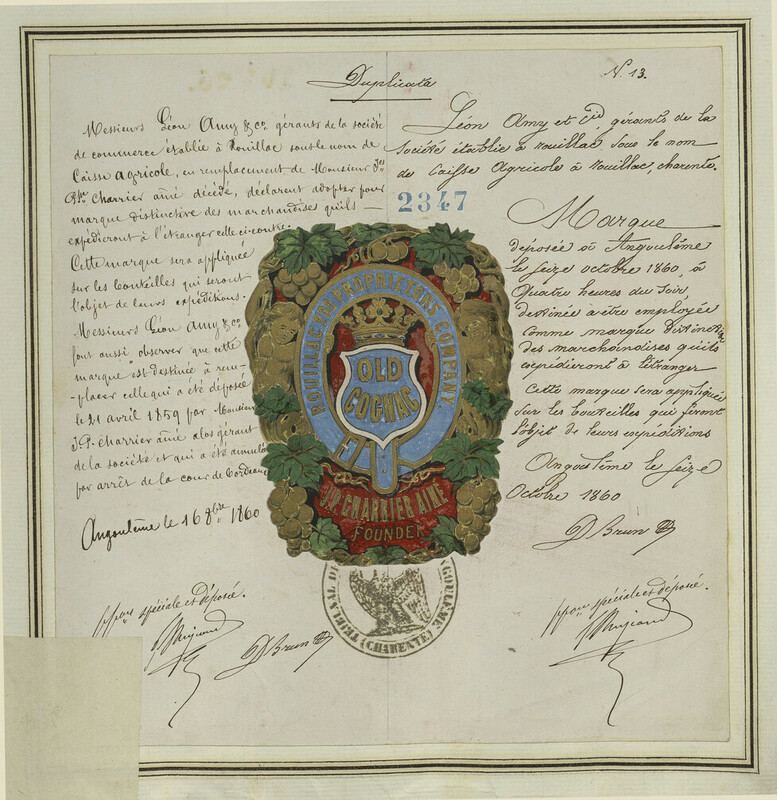 Duplicata
N. 13.
Messieurs Léon Amy & co. gérants de la société
de commerce établie à Rouillac sous le nom de
Caisse Agricole, en remplacement de Monsieur
Charrier aîné décédé, déclarent adopter pour
marque distinctive des marchandises qu'ils
expédieront à l'étranger celle ci contre.
Cette marque sera appliquée
sur les bouteilles qui seront
l'objet de leurs expéditions.
Messieurs Léon Amy & co
font aussi observer que cette
marque est destinée à rem-
placer celle qui a été déposée
le 21 avril 1859 par Monsieur
J.P. Charrier aîné alors gérant
de la société et qui a été annulée
par arrêt de la cour de Bordeaux
Angoulême le 16 8bre 1860
ppon spéciale et déposé.
D Brun
Léon Amy et Cie, gérants de la
Société établie à Rouillac sous le nom
de Caisse Agricole à Rouillac, charente.
2347
Marque
déposée à Angoulême
le seize octobre 1860, à
Quatre heures du Soir,
destinée a être employée
comme marque Distinctive
des marchandises qu'ils
expédieront à l'étranger
Cette marque sera appliquée
sur les bouteilles qui feront
l'objet de leurs expéditions
Angoulême le seize
Octobre 1860
D Brun
ppon spéciale et déposé.
ROUILLAC VYD PROPRIETORS COMPANY.
OLD
COGNAC
J.P. CHARRIER AINÉ
FOUNDER
TRIBUNAL DE ANGOULÊME
(CHARENTE)